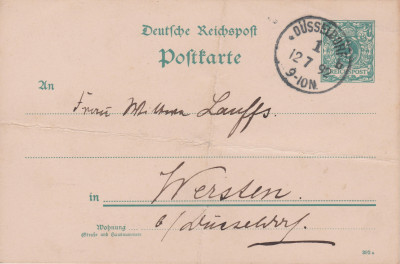 Deutsche Reichspost
Postkarte
DÜSSELDORF
1
12 7 92
9-10N.
REICHSPOST
An
Frau Wittwe Lauffs.
in Wersten.
Wohnung
(Straße und Hausnummer)
b/Düsseldorf.